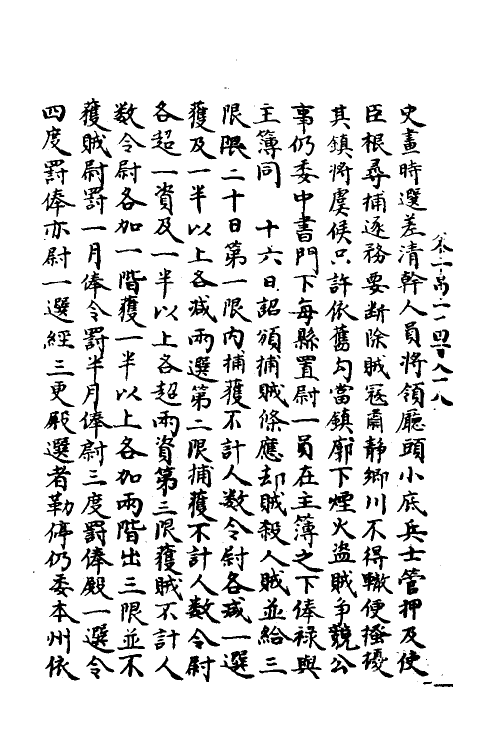 卷一萬一千四百八十八
史畫時選差清幹人員將領廳頭小底兵士管押及使
臣根尋捕逐務要斷除賊寇肅静鄉川不得輙便搔擾
其鎮將虞候只許依舊勾當鎮郭下煙火盜賊爭競公
事仍委中書門下每縣置尉一員在主簿之下俸禄與
主簿同　十六日詔頒捕賊條應刼賊殺人賊並給三
限限二十日第一限内捕獲不計人数令尉各減一選
獲及一半以上各減兩選第二限捕獲不計人数令尉
各超一資及一半以上各超兩資第三限獲賊不計人
数令尉各加一階獲一半以上各加兩階出三限並不
獲賊尉罰一月俸令罰半月俸尉三度罰俸殿一選令
四度罰俸亦尉一選經三更殿選者勒停仍委本州依